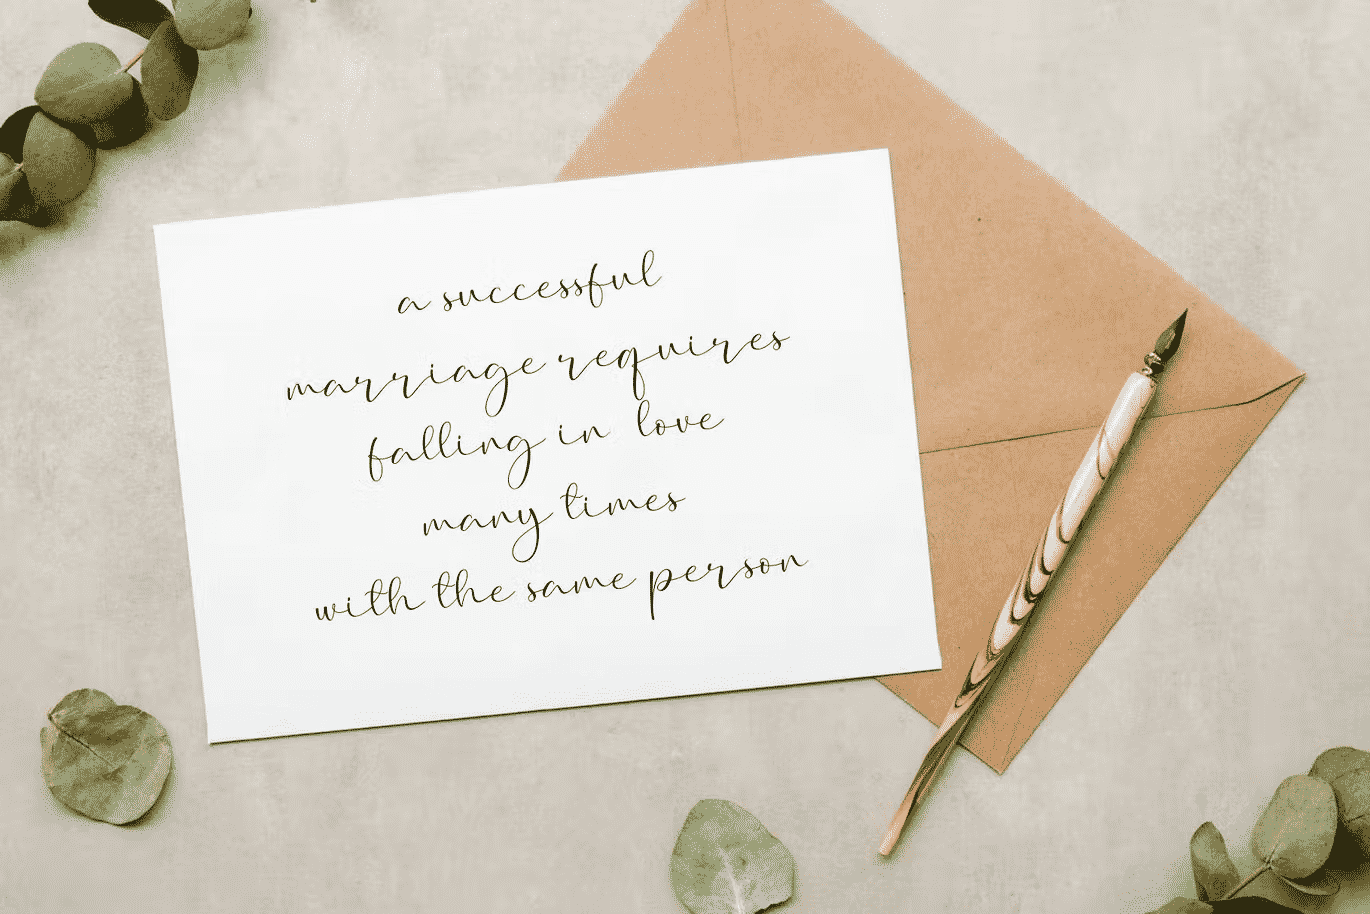 a successful
marriage requires
falling in love
many times
with the same person